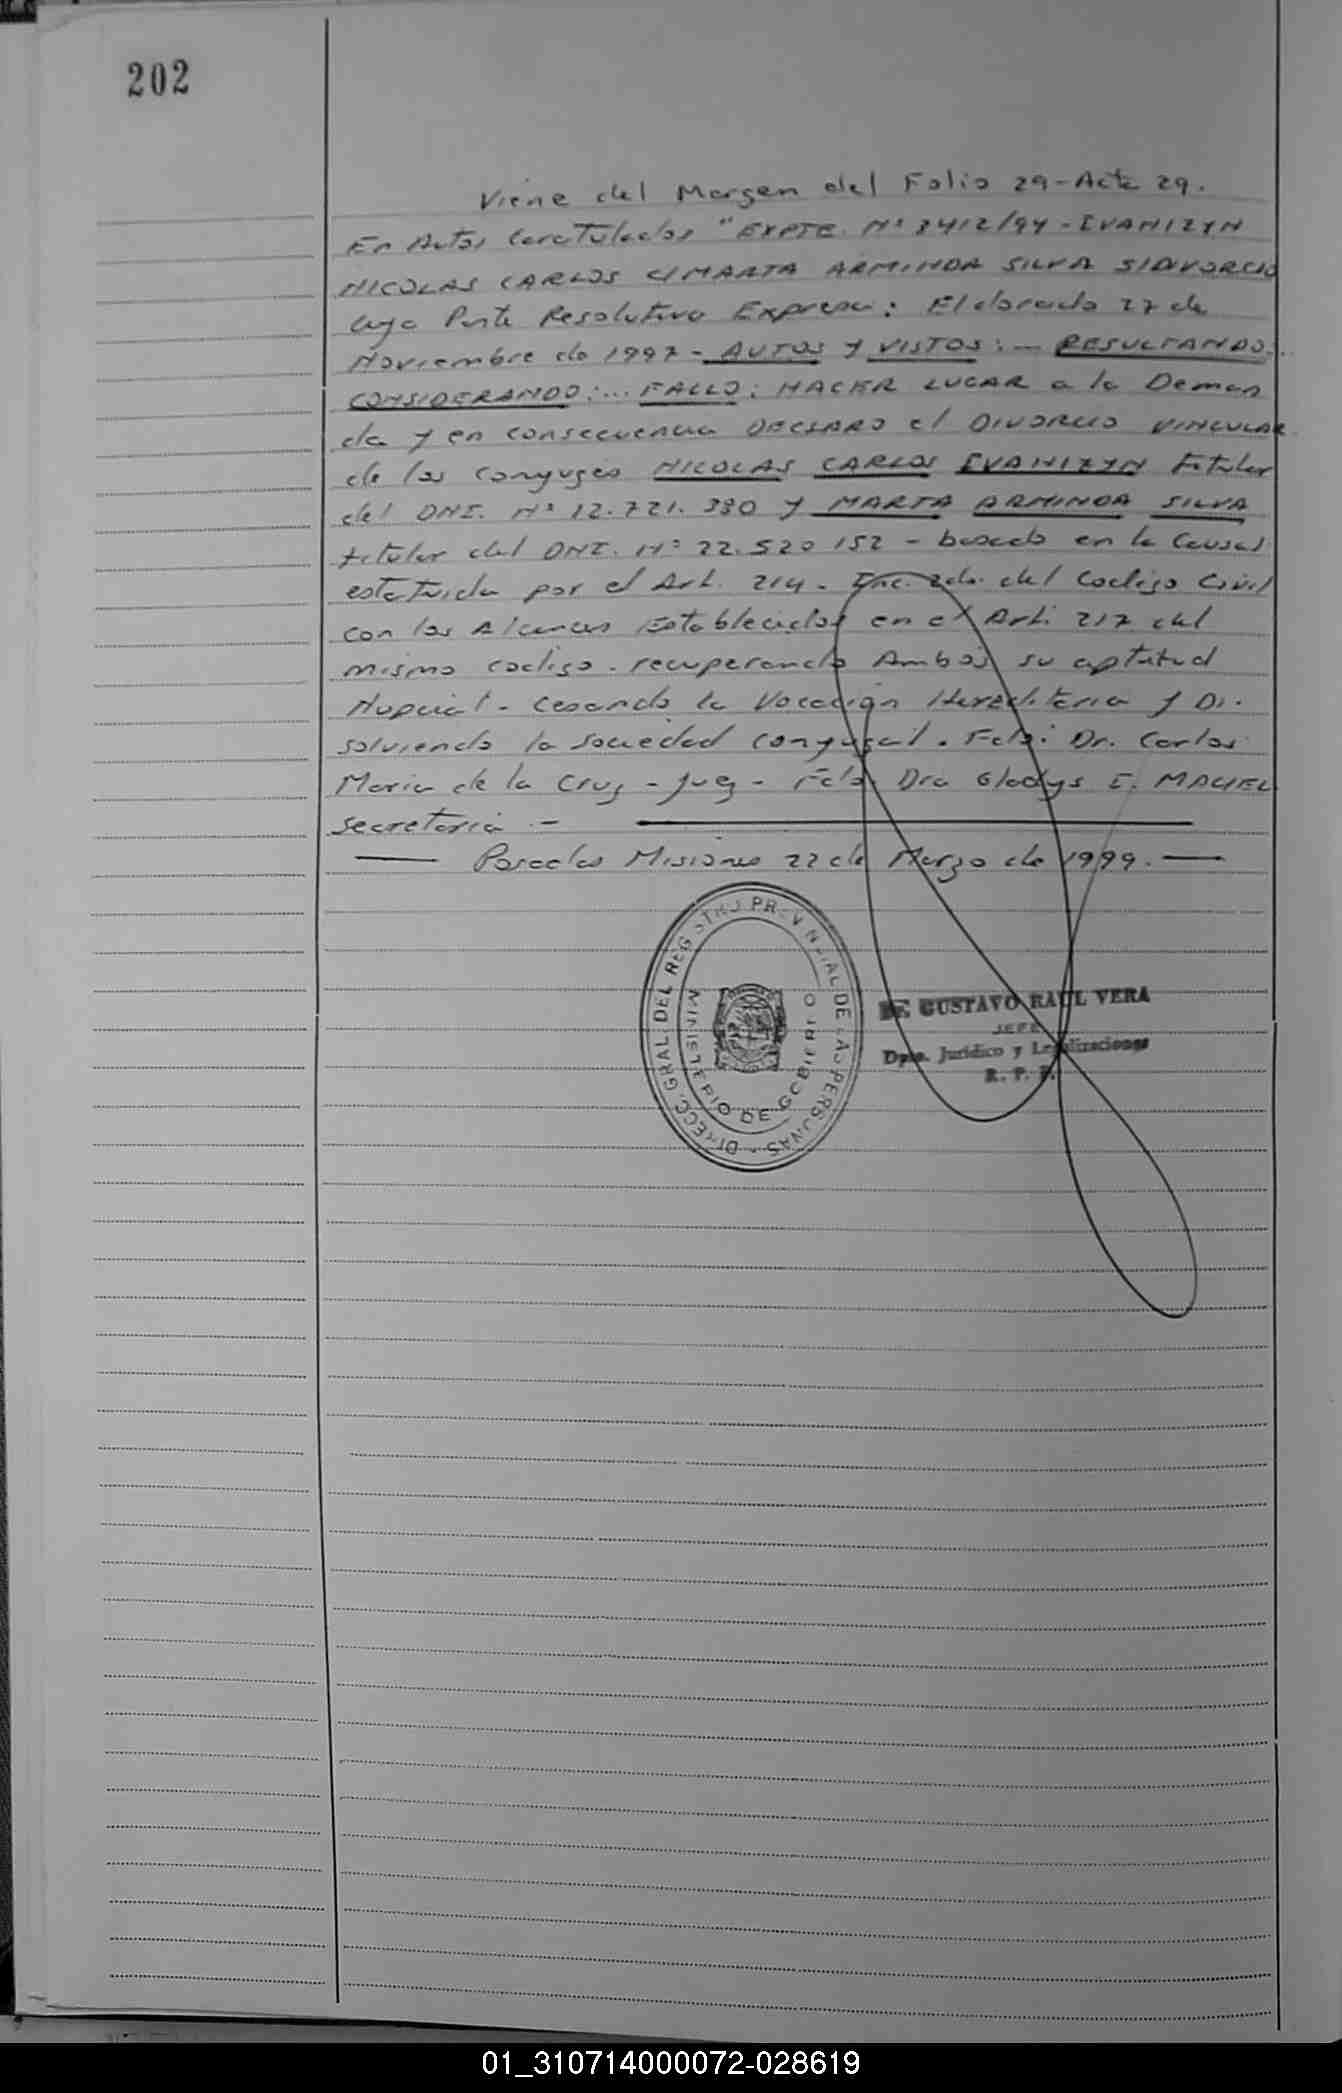 202
Viene del Margen del Folio 29 - Acta 29.
En Autos Caratulados "EXPTE. Nº 3412/94 - IVANIZYN
NICOLAS CARLOS C/ MARTA ARMINDA SILVA S/DIVORCIO
cuya Parte Resolutiva Expresa: Eldorado 27 de
Noviembre de 1997 - AUTOS Y VISTOS: - RESULTANDO:..
CONSIDERANDO:... FALLO: HACER LUGAR a la Deman
da y en consecuencia DECLARO el DIVORCIO VINCULAR
de los conyuges NICOLAS CARLOS IVANIZYN titular
del DNI. Nº 12.721.380 y MARTA ARMINDA SILVA
titular del DNI. Nº 22.520 152 - basado en la Causal
estatuida por el Art. 214. Inc. 2do. del Codigo Civil
con los Alcances Establecidos en el Art. 217 del
mismo codigo. recuperando Ambos su aptitud
Nupcial - cesando la Vocación Hereditaria y Di.
solviendo la sociedad conyugal. Fdo: Dr. Carlos
Maria de la Cruz - Juez - Fdo Dra Gladys E. MACIEL
secretaria -
Posadas Misiones 22 de Marzo de 1999.
DIRECC. GRAL. DEL REGISTRO PROVINCIAL DE LAS PERSONAS -
MINISTERIO DE GOBIERNO
GUSTAVO RAUL VERA
JEFE
Dpto. Jurídico y Legalizaciones
R. P. P.
01_310714000072-028619